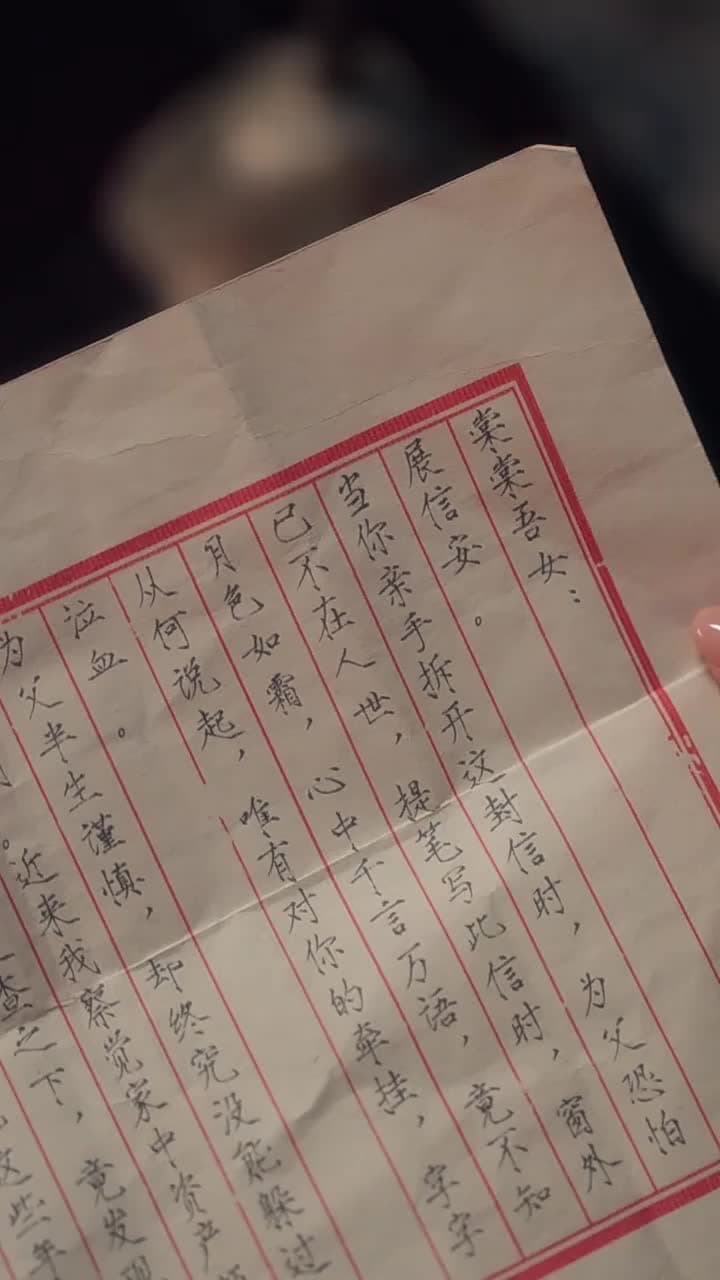 棠棠吾女：
展信安。
当你亲手拆开这封信时，为父恐怕
已不在人世，提笔写此信时，窗外
月色如霜，心中千言万语，竟不知
从何说起，唯有对你的牵挂，字字
泣血。
为父半生谨慎，却终究没能躲过
。近来我察觉家中资产
查之下，竟发现
这些年